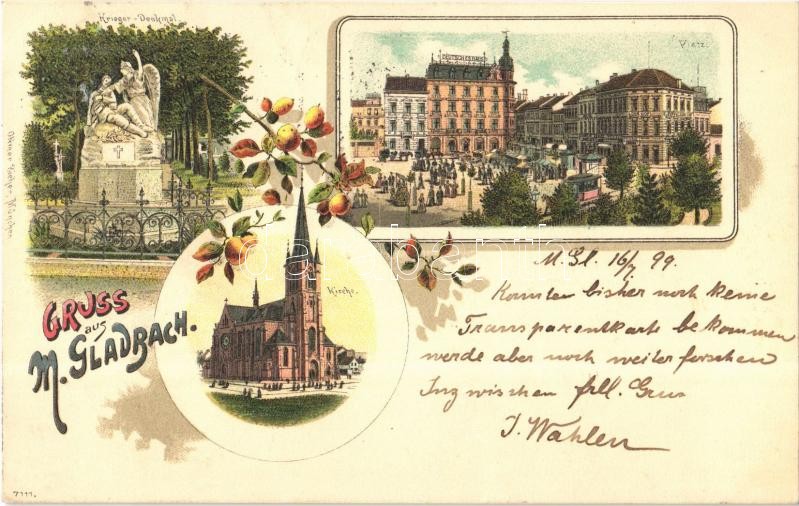 Krieger-Denkmal.
DEUTSCHES HAUS
Platz.
Kirche.
GRUSS
aus
M. GLADBACH.
M. Gl. 16/7 99.
Konnten bisher noch keine
Transparentkarte bekommen
werde aber noch weiter forschen
Inzwischen frll. Gruss
J. Wahlen
7111.
darabanth